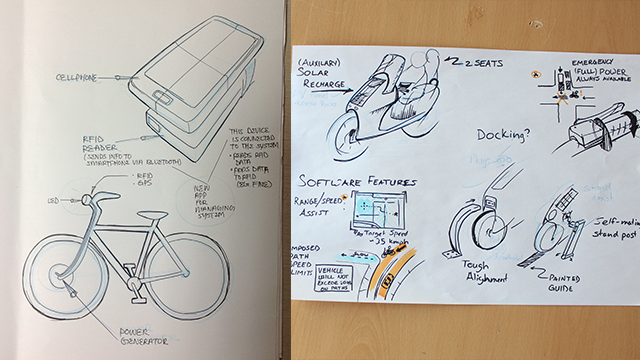 CELLPHONE
RFID
READER
(SENDS INFO TO
SMARTPHONE VIA BLUETOOTH)
THIS DEVICE
IS CONNECTED
TO THE SYSTEM
• READS RFID
DATA
• ADDS DATA
TO RFID
NEW
APP
FOR
MANAGING
SYSTEM
• RFID
• GPS
LED
POWER
GENERATOR
(AUXILARY)
SOLAR
RECHARGE
2 SEATS
EMERGENCY
(FULL) POWER
ALWAYS AVAILABLE
Docking?
SOFTWARE FEATURES
RANGE/SPEED
ASSIST
Target Speed
~35 kmph
IMPOSED
PATH
SPEED
LIMITS
VEHICLE
WILL NOT
EXCEDE
ON PATHS
Tough
Alignment
PAINTED
GUIDE
Stand post